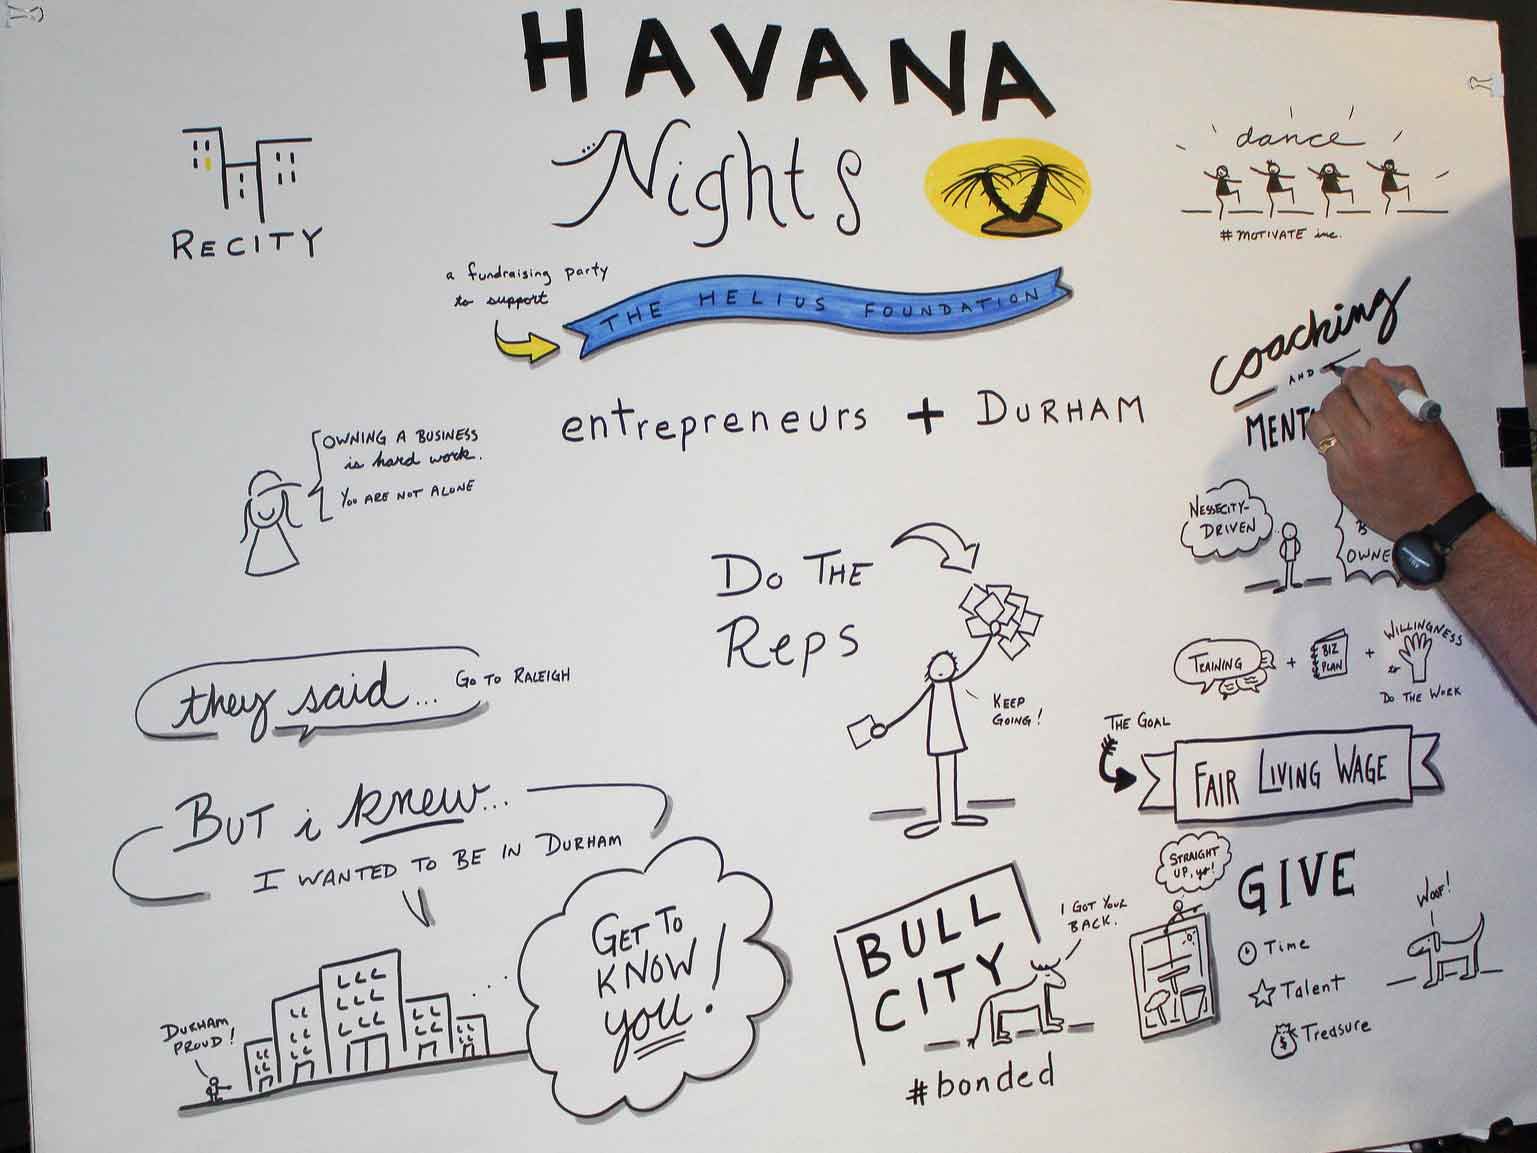 HAVANA
Nights
RECITY
dance
# MOTIVATE inc.
a fundraising party
to support
THE HELIUS FOUNDATION
entrepreneurs + DURHAM
OWNING A BUSINESS
is hard work.
YOU ARE NOT ALONE
coaching
AND
MENT
NESSECITY-
DRIVEN
OWNE
DO THE
REPS
KEEP
GOING!
they said...
GO TO RALEIGH
BUT i knew...
I WANTED TO BE IN DURHAM
TRAINING
+
BIZ
PLAN
+
WILLINGNESS
to
DO THE WORK
THE GOAL
FAIR LIVING WAGE
GET TO
KNOW
you!
DURHAM
PROUD!
BULL
CITY
I GOT YOUR
BACK.
#bonded
STRAIGHT
UP, yo!
GIVE
Time
Talent
$
Treasure
WOOF!